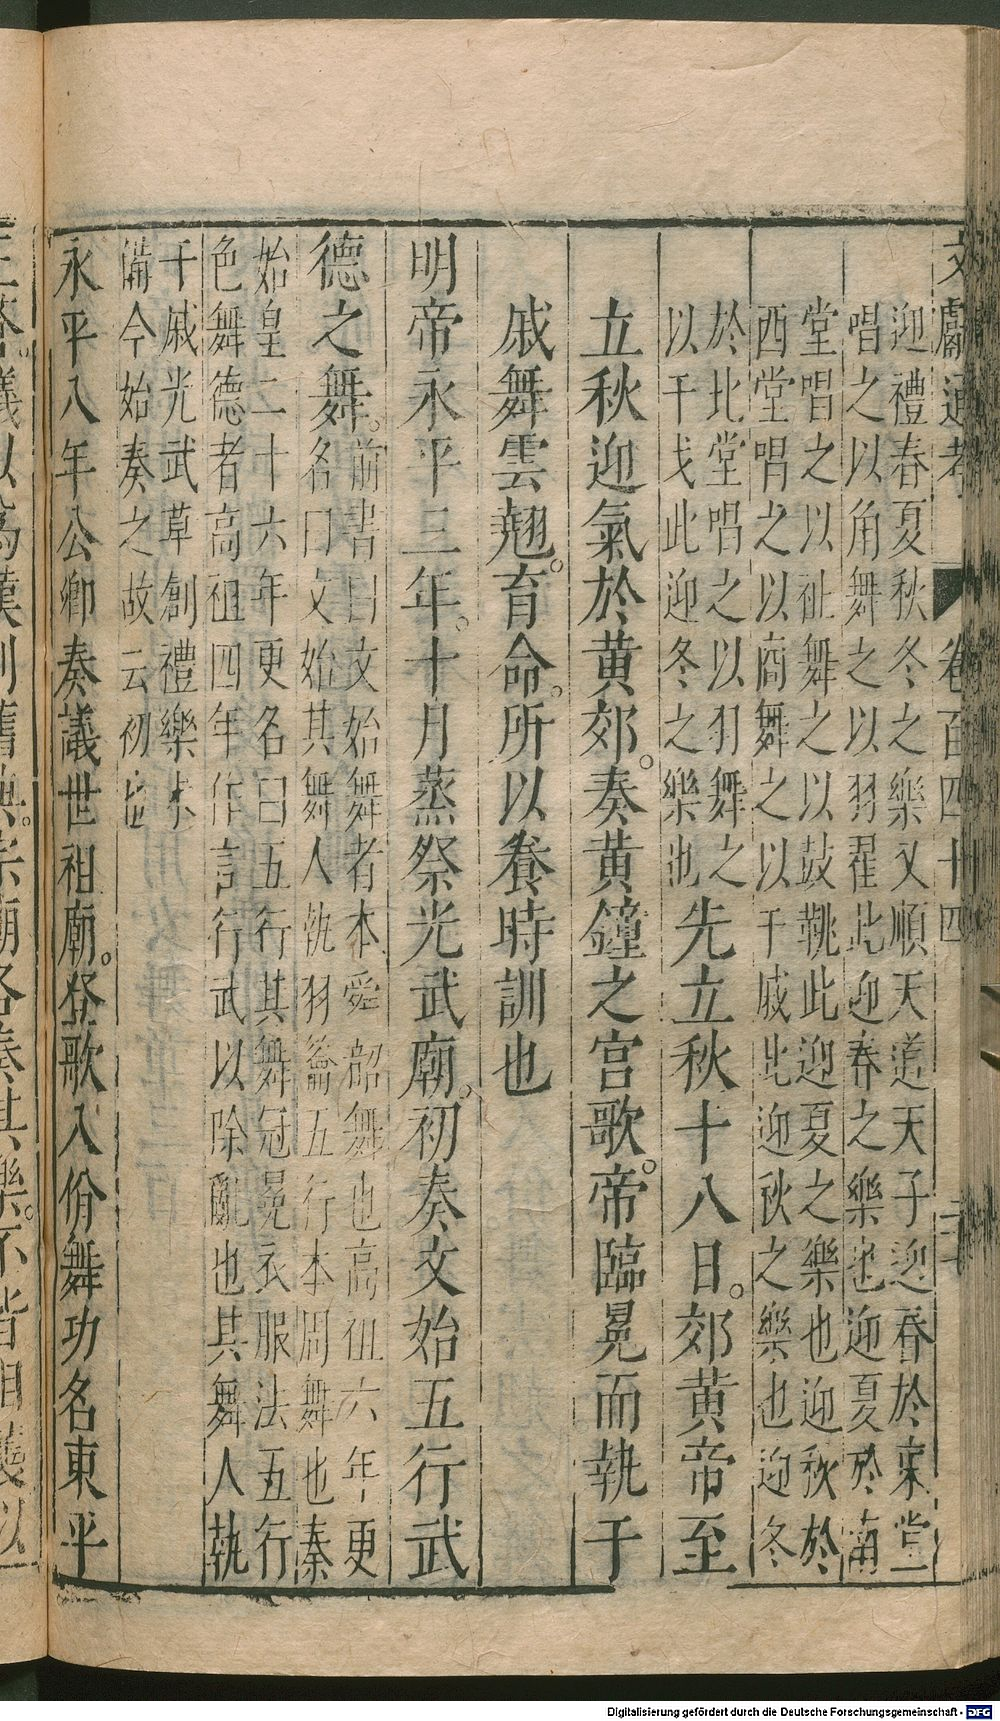 文獻通考 卷百四十四 二十
迎禮春夏秋冬之樂又順天道天子迎春於東堂
唱之以角舞之以羽翟此迎春之樂也迎夏於南
堂唱之以祉舞之以鼓鞉此迎夏之樂也迎秋於
西堂唱之以商舞之以干戚此迎秋之樂也迎冬
於北堂唱之以羽舞之
以干戈此迎冬之樂也先立秋十八日。郊黃帝至
立秋迎氣於黃郊。奏黃鐘之宮歌。帝臨冕而執干
戚舞雲翹。育命。所以養時訓也
明帝永平三年。十月蒸祭光武廟。初奏文始五行武
德之舞。前書曰文始舞者本舜韶舞也高祖六年更
名曰文始其舞人執羽籥五行本周舞也秦
始皇二十六年更名曰五行其舞冠冕衣服法五行
色舞德者高祖四年作言行武以除亂也其舞人執
干戚光武草創禮樂未
備今始奏之故云初也
永平八年公卿奏議世祖廟。登歌入佾舞功名東平
王蒼。議以為漢制舊典。宗廟各奏其樂。不皆相襲以
Digitalisierung gefördert durch die Deutsche Forschungsgemeinschaft - DFG